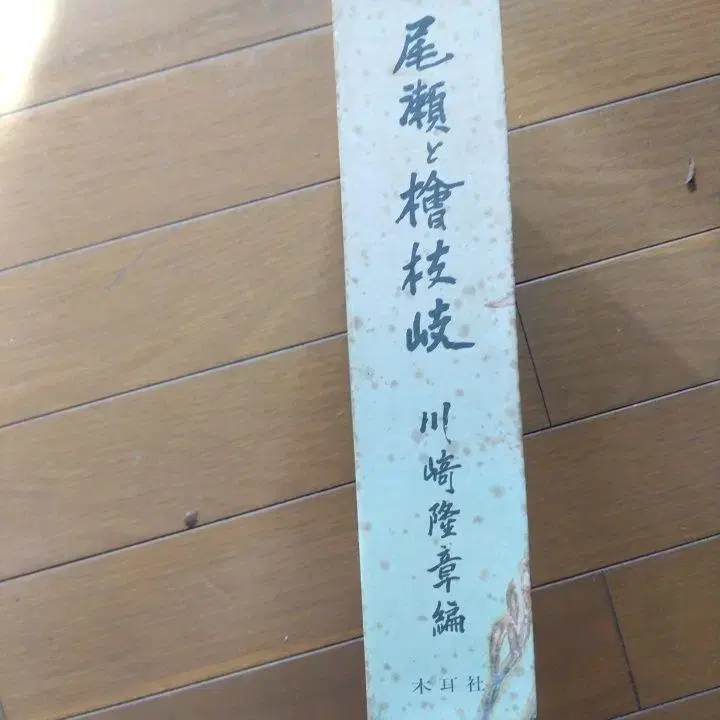 尾瀬と檜枝岐
川崎隆章編
木耳社